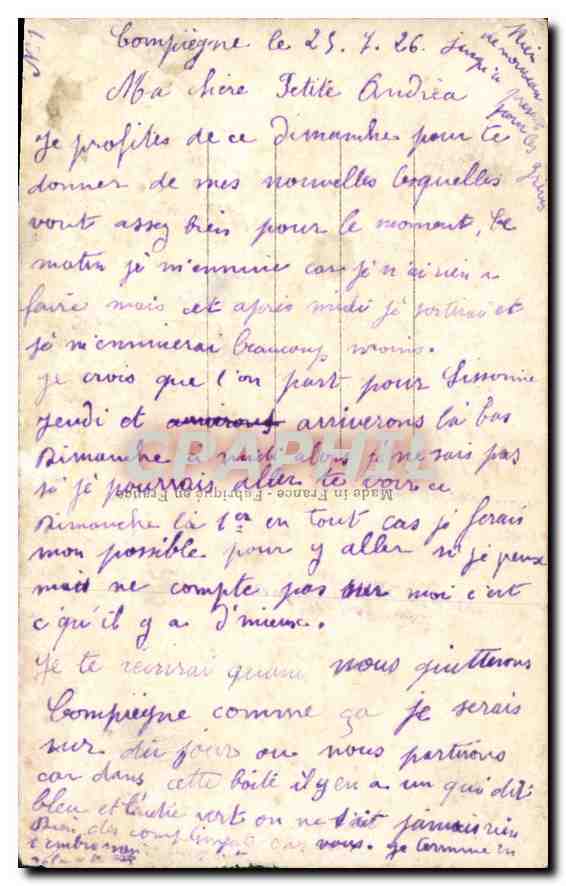 N° 1
Compiègne le 25. 7. 26.
Rien de nouveau jusqu'à présent pour les
Ma chère Petite Andréa
Je profites de ce dimanche pour te
donner de mes nouvelles lesquelles
vont assez bien pour le moment, Ce
matin je m'ennuie car je n'ai rien a
faire mais cet après midi je sortirai et
je m'ennuierai beaucoup moins.
Je crois que l'on part pour Sissonne
Jeudi et arriverons là bas
Dimanche a midi alors je ne sais pas
si je pourrais aller te voir ce
Dimanche là 1er en tout cas je ferais
mon possible pour y aller si je peux
mais ne compte pas sur moi c'est
c'qu'il y a d'mieux.
Je te récrirai quand nous quitterons
Compiègne comme ça je serais
sur du jour ou nous partirons
car dans cette boîte il y en a un qui dit
bleu et l'autre vert on ne sait jamais rien
Bien des compliments vous. Je termine en
t'embrassant
Made in France - Fabriqué en France
CARAPHIL